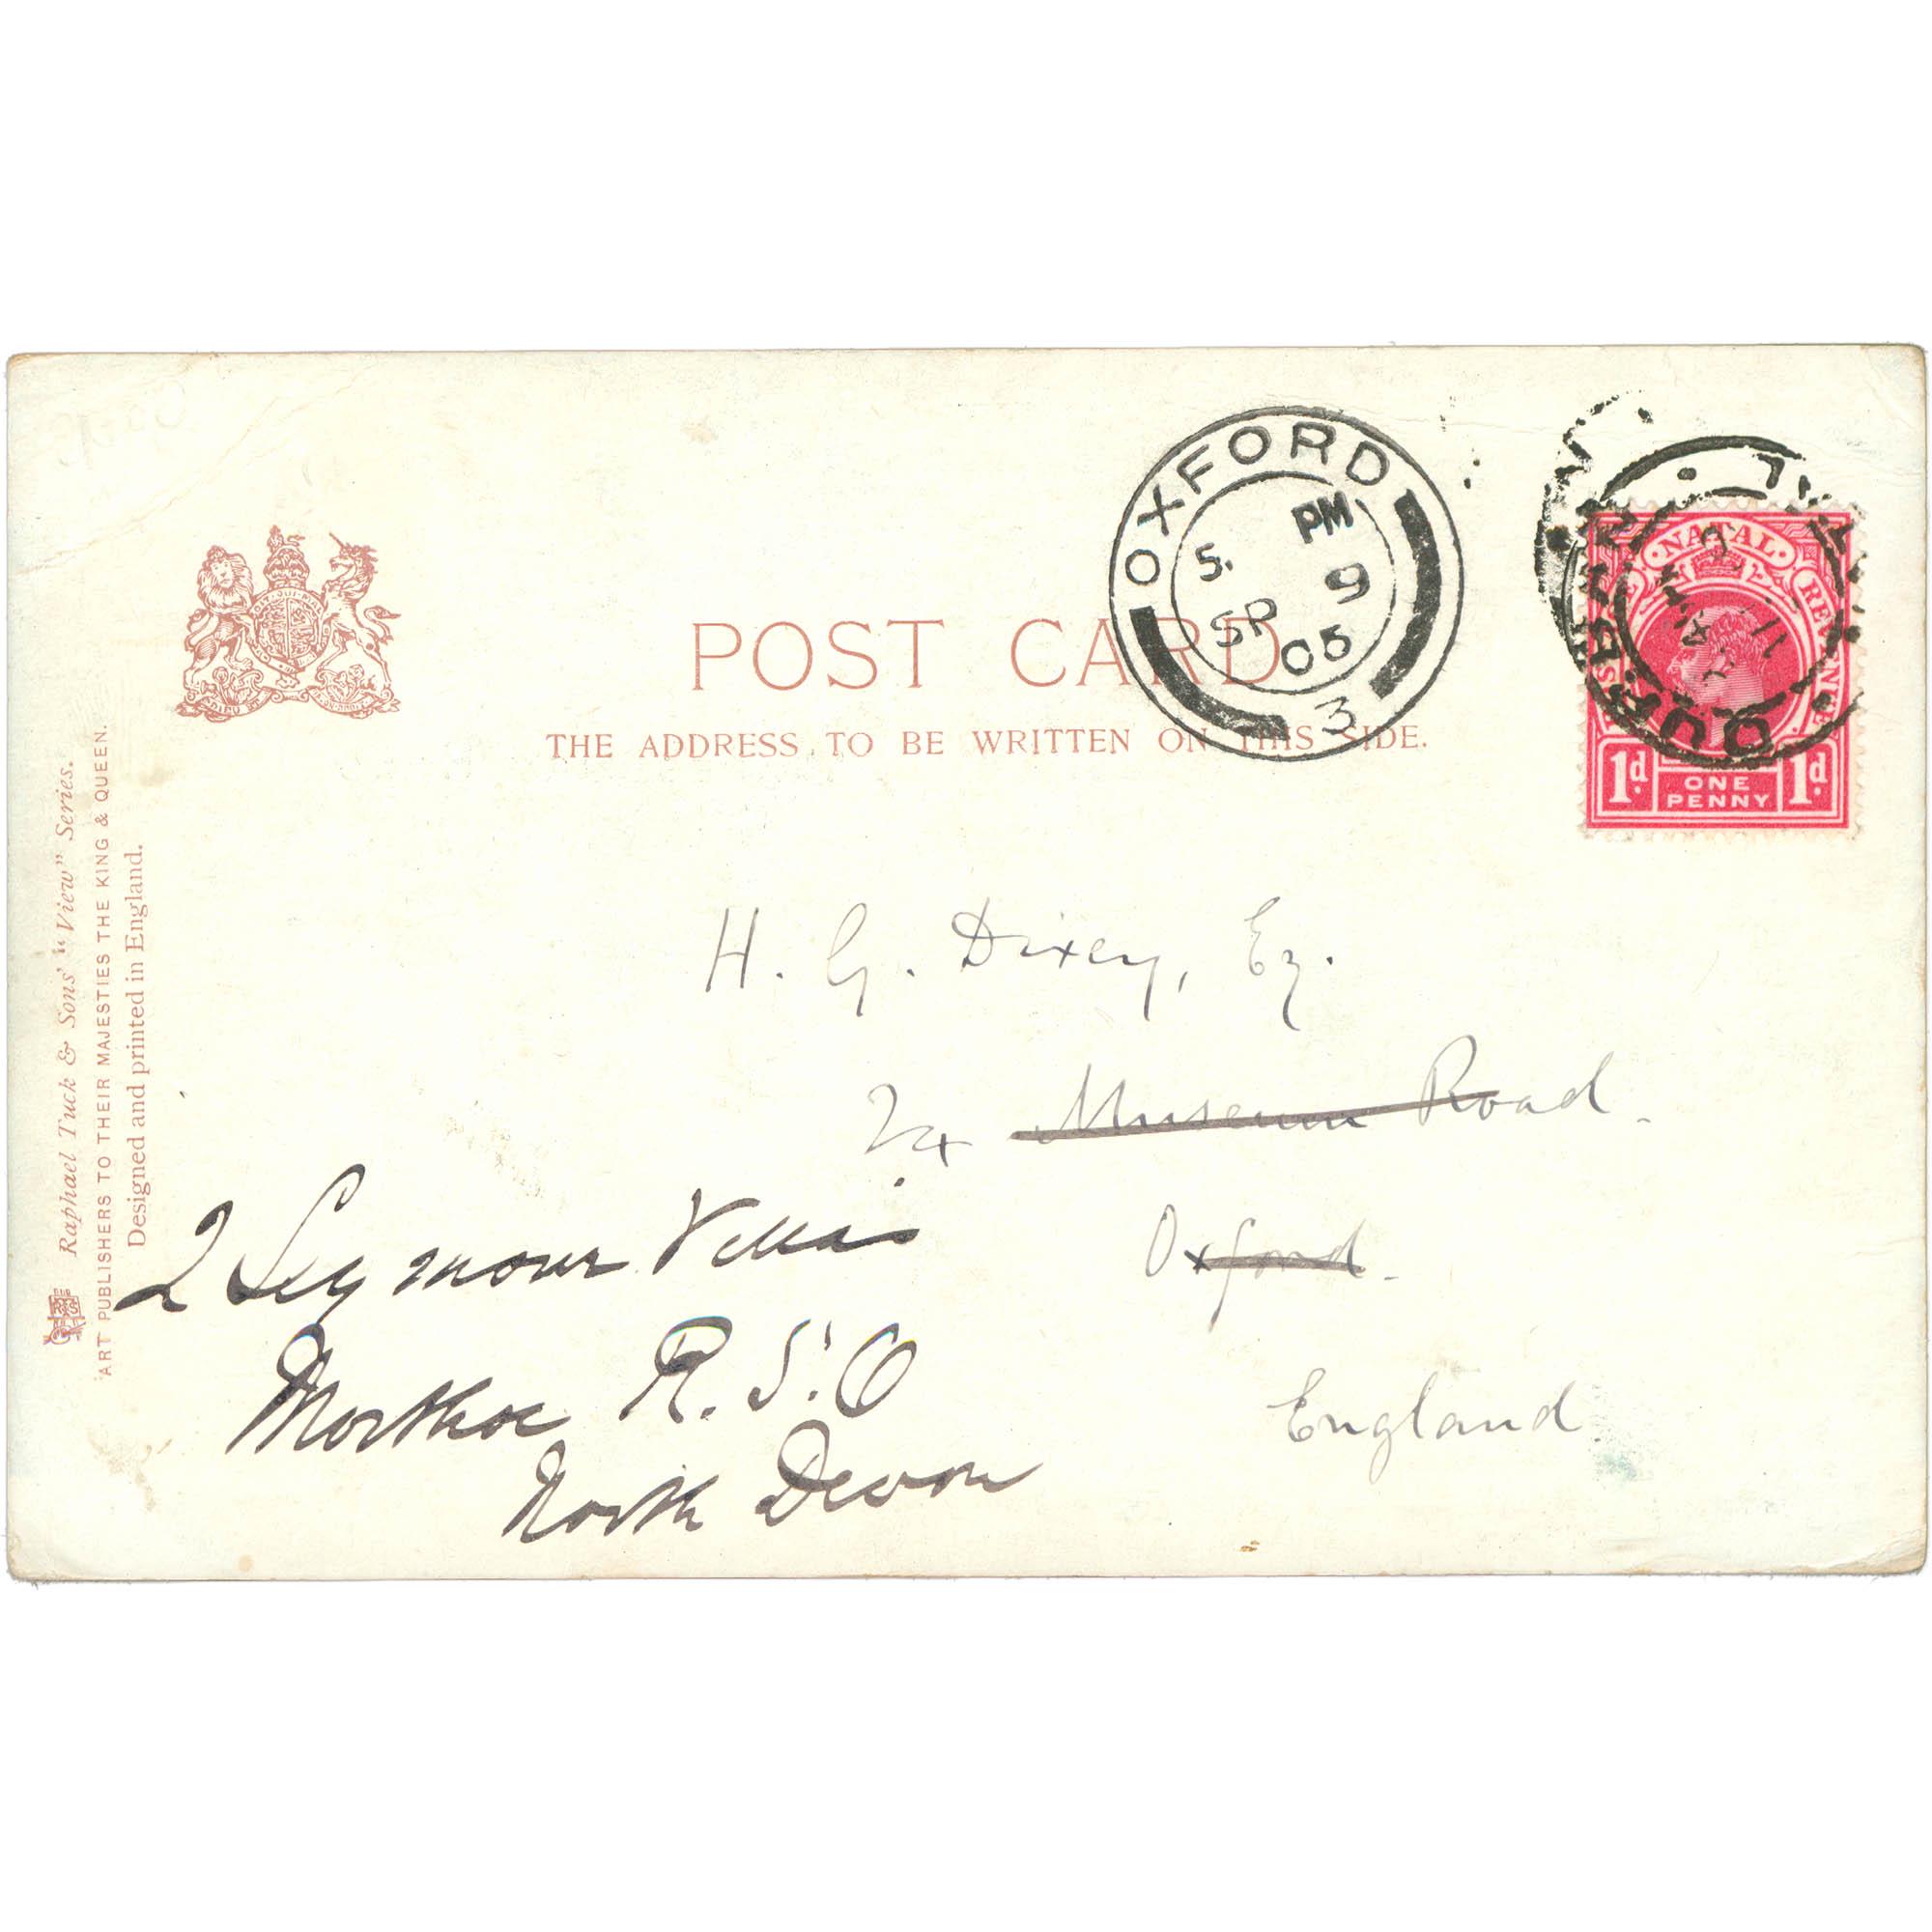 OXFORD
5. PM
9
SP
05
3
DURBAN
NATAL
POSTAGE REVENUE
1d ONE PENNY 1d
POST CARD
THE ADDRESS TO BE WRITTEN ON THIS SIDE.
Raphael Tuck & Sons' "View" Series.
ART PUBLISHERS TO THEIR MAJESTIES THE KING & QUEEN.
Designed and printed in England.
H. G. Dixey, Esq.
Museum Road.
Oxford.
England.
2 Seymour Villas
Morthoe R.S.O
North Devon